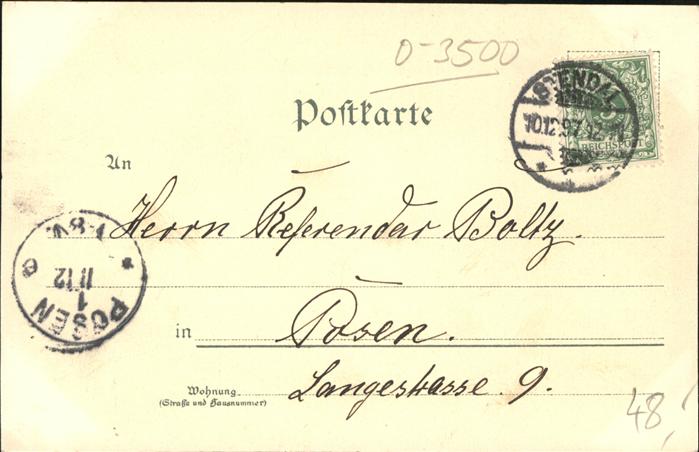 O-3500
Postkarte
STENDAL
10.12.97.12-
REICHSPOST
An
Herrn Referendar Boltz.
POSEN
1
11 12
in Posen.
Wohnung
(Straße und Hausnummer)
Langestrasse 9.
48,-